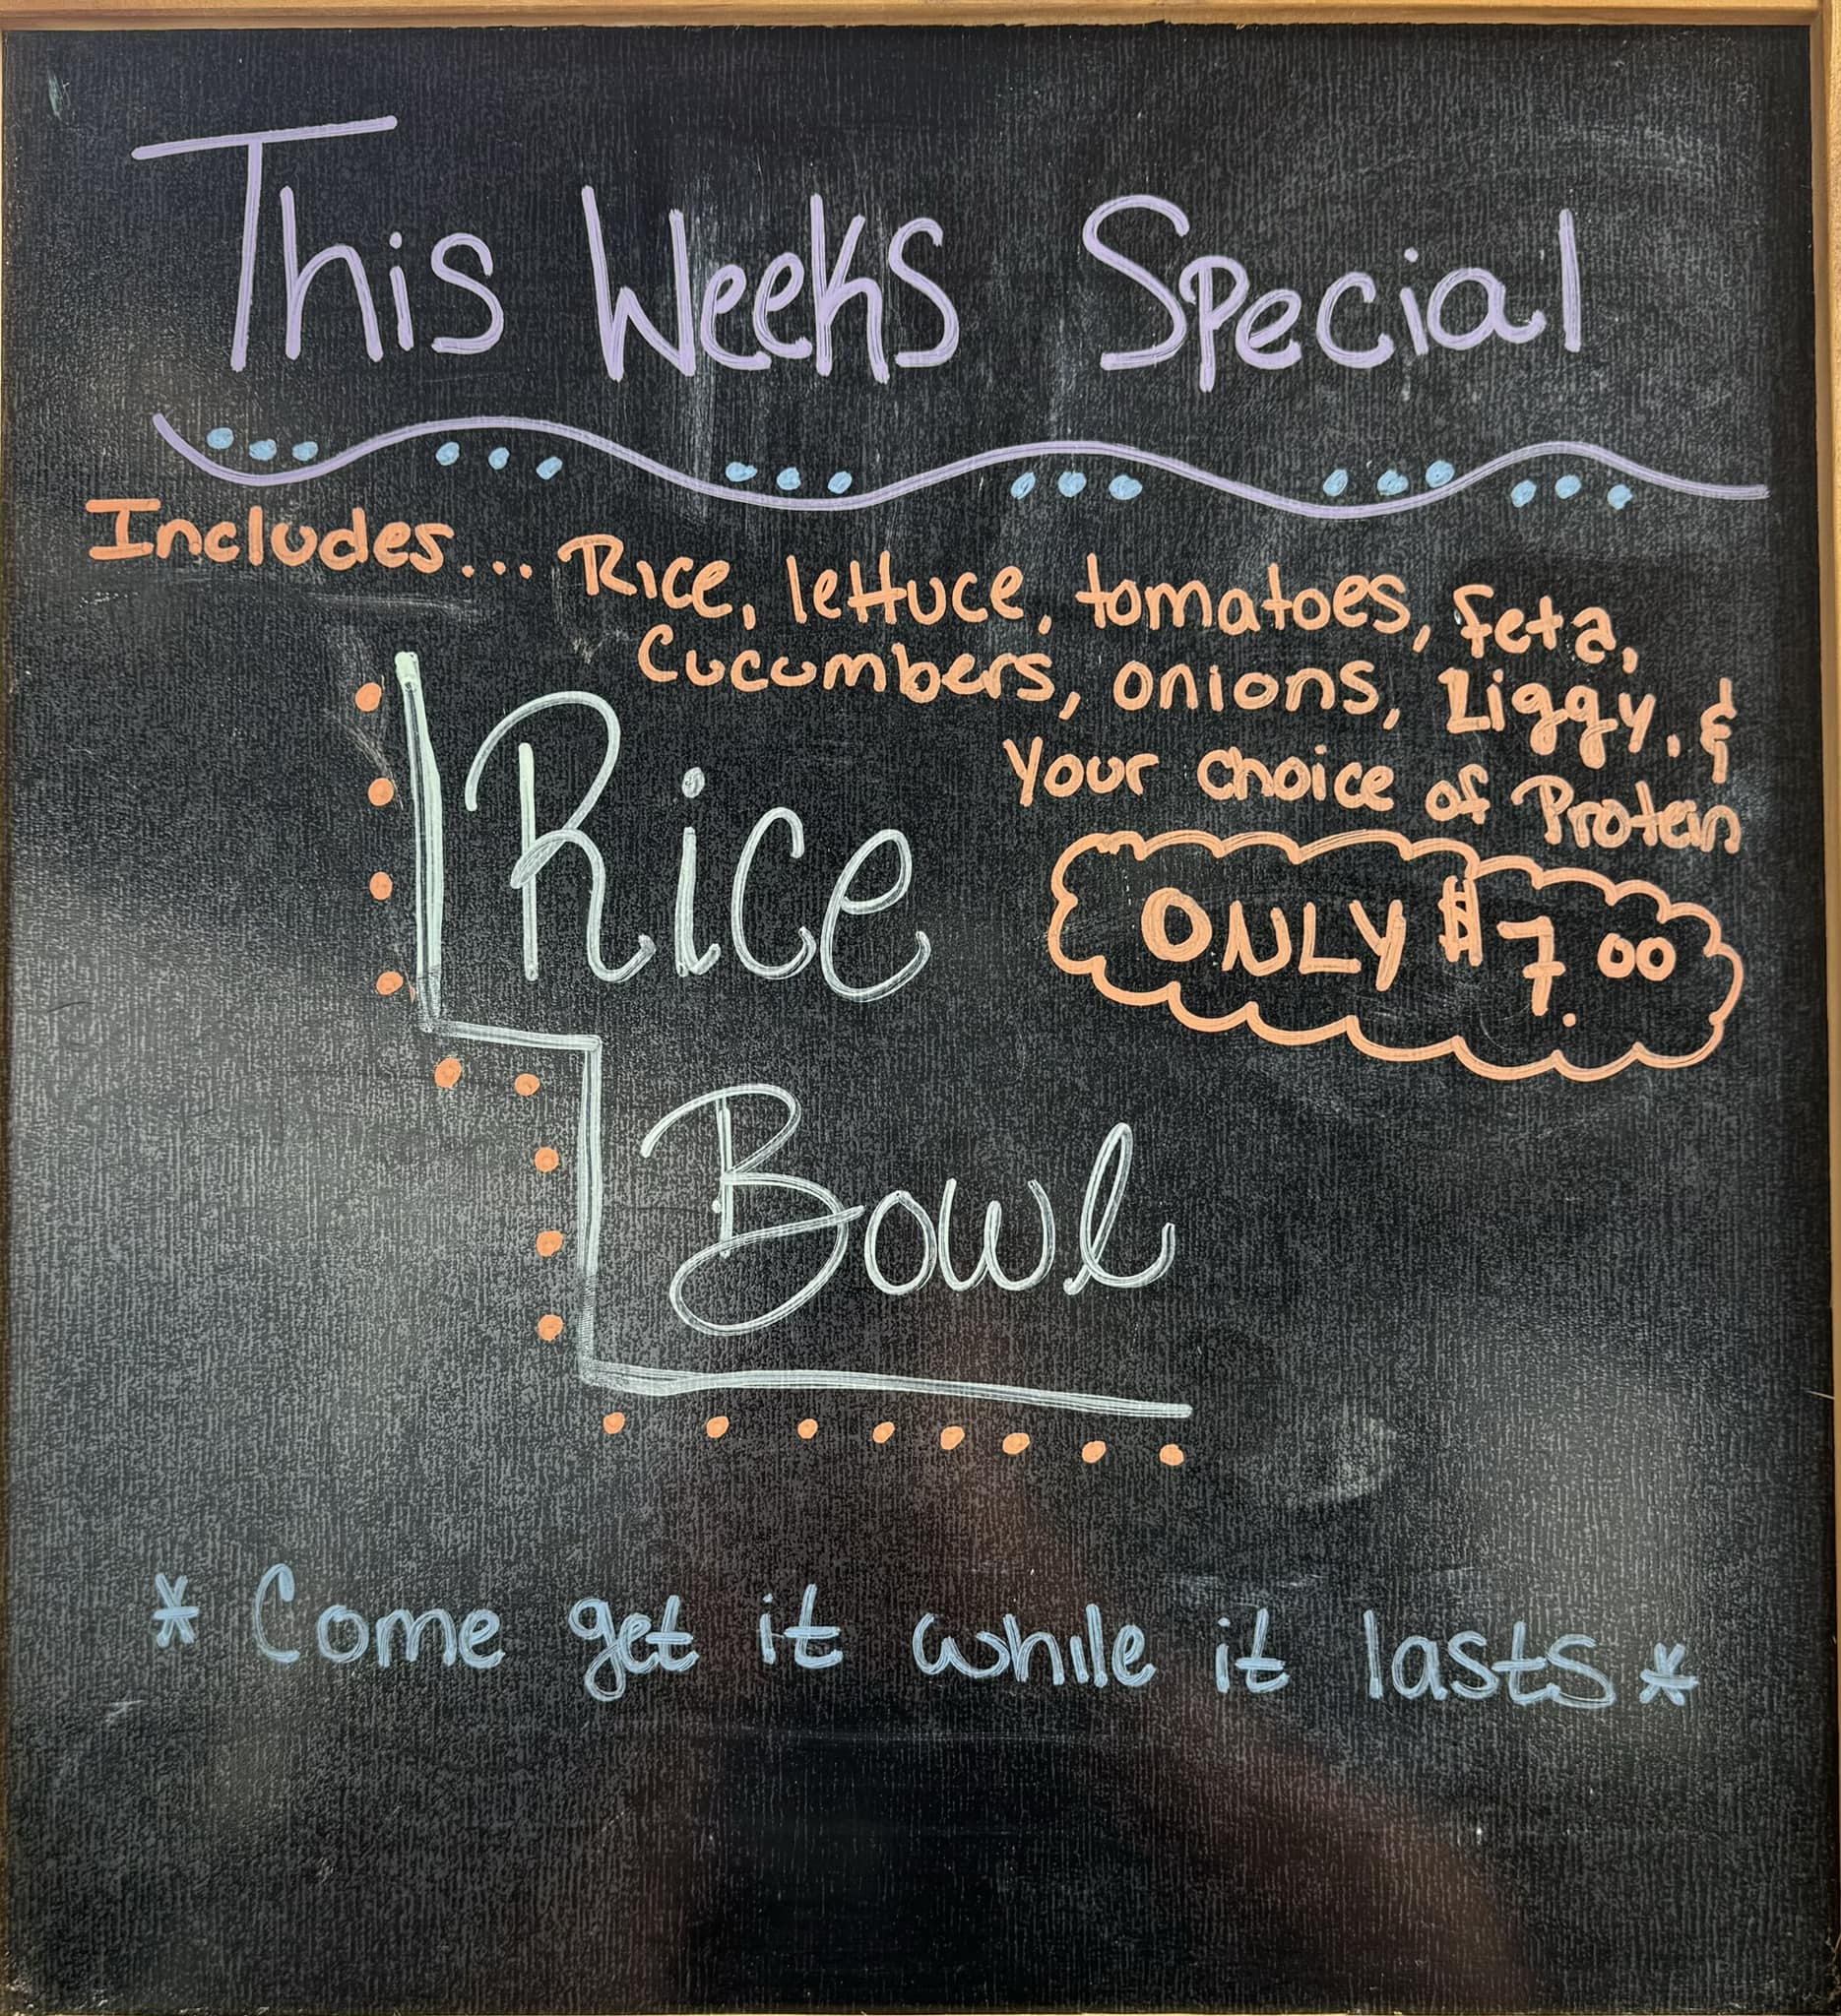 This Weeks Special
Includes... Rice, lettuce, tomatoes, feta,
Cucumbers, onions, Ziggy, &
Your choice of Protein
ONLY $7.00
Rice
Bowl
* Come get it while it lasts *